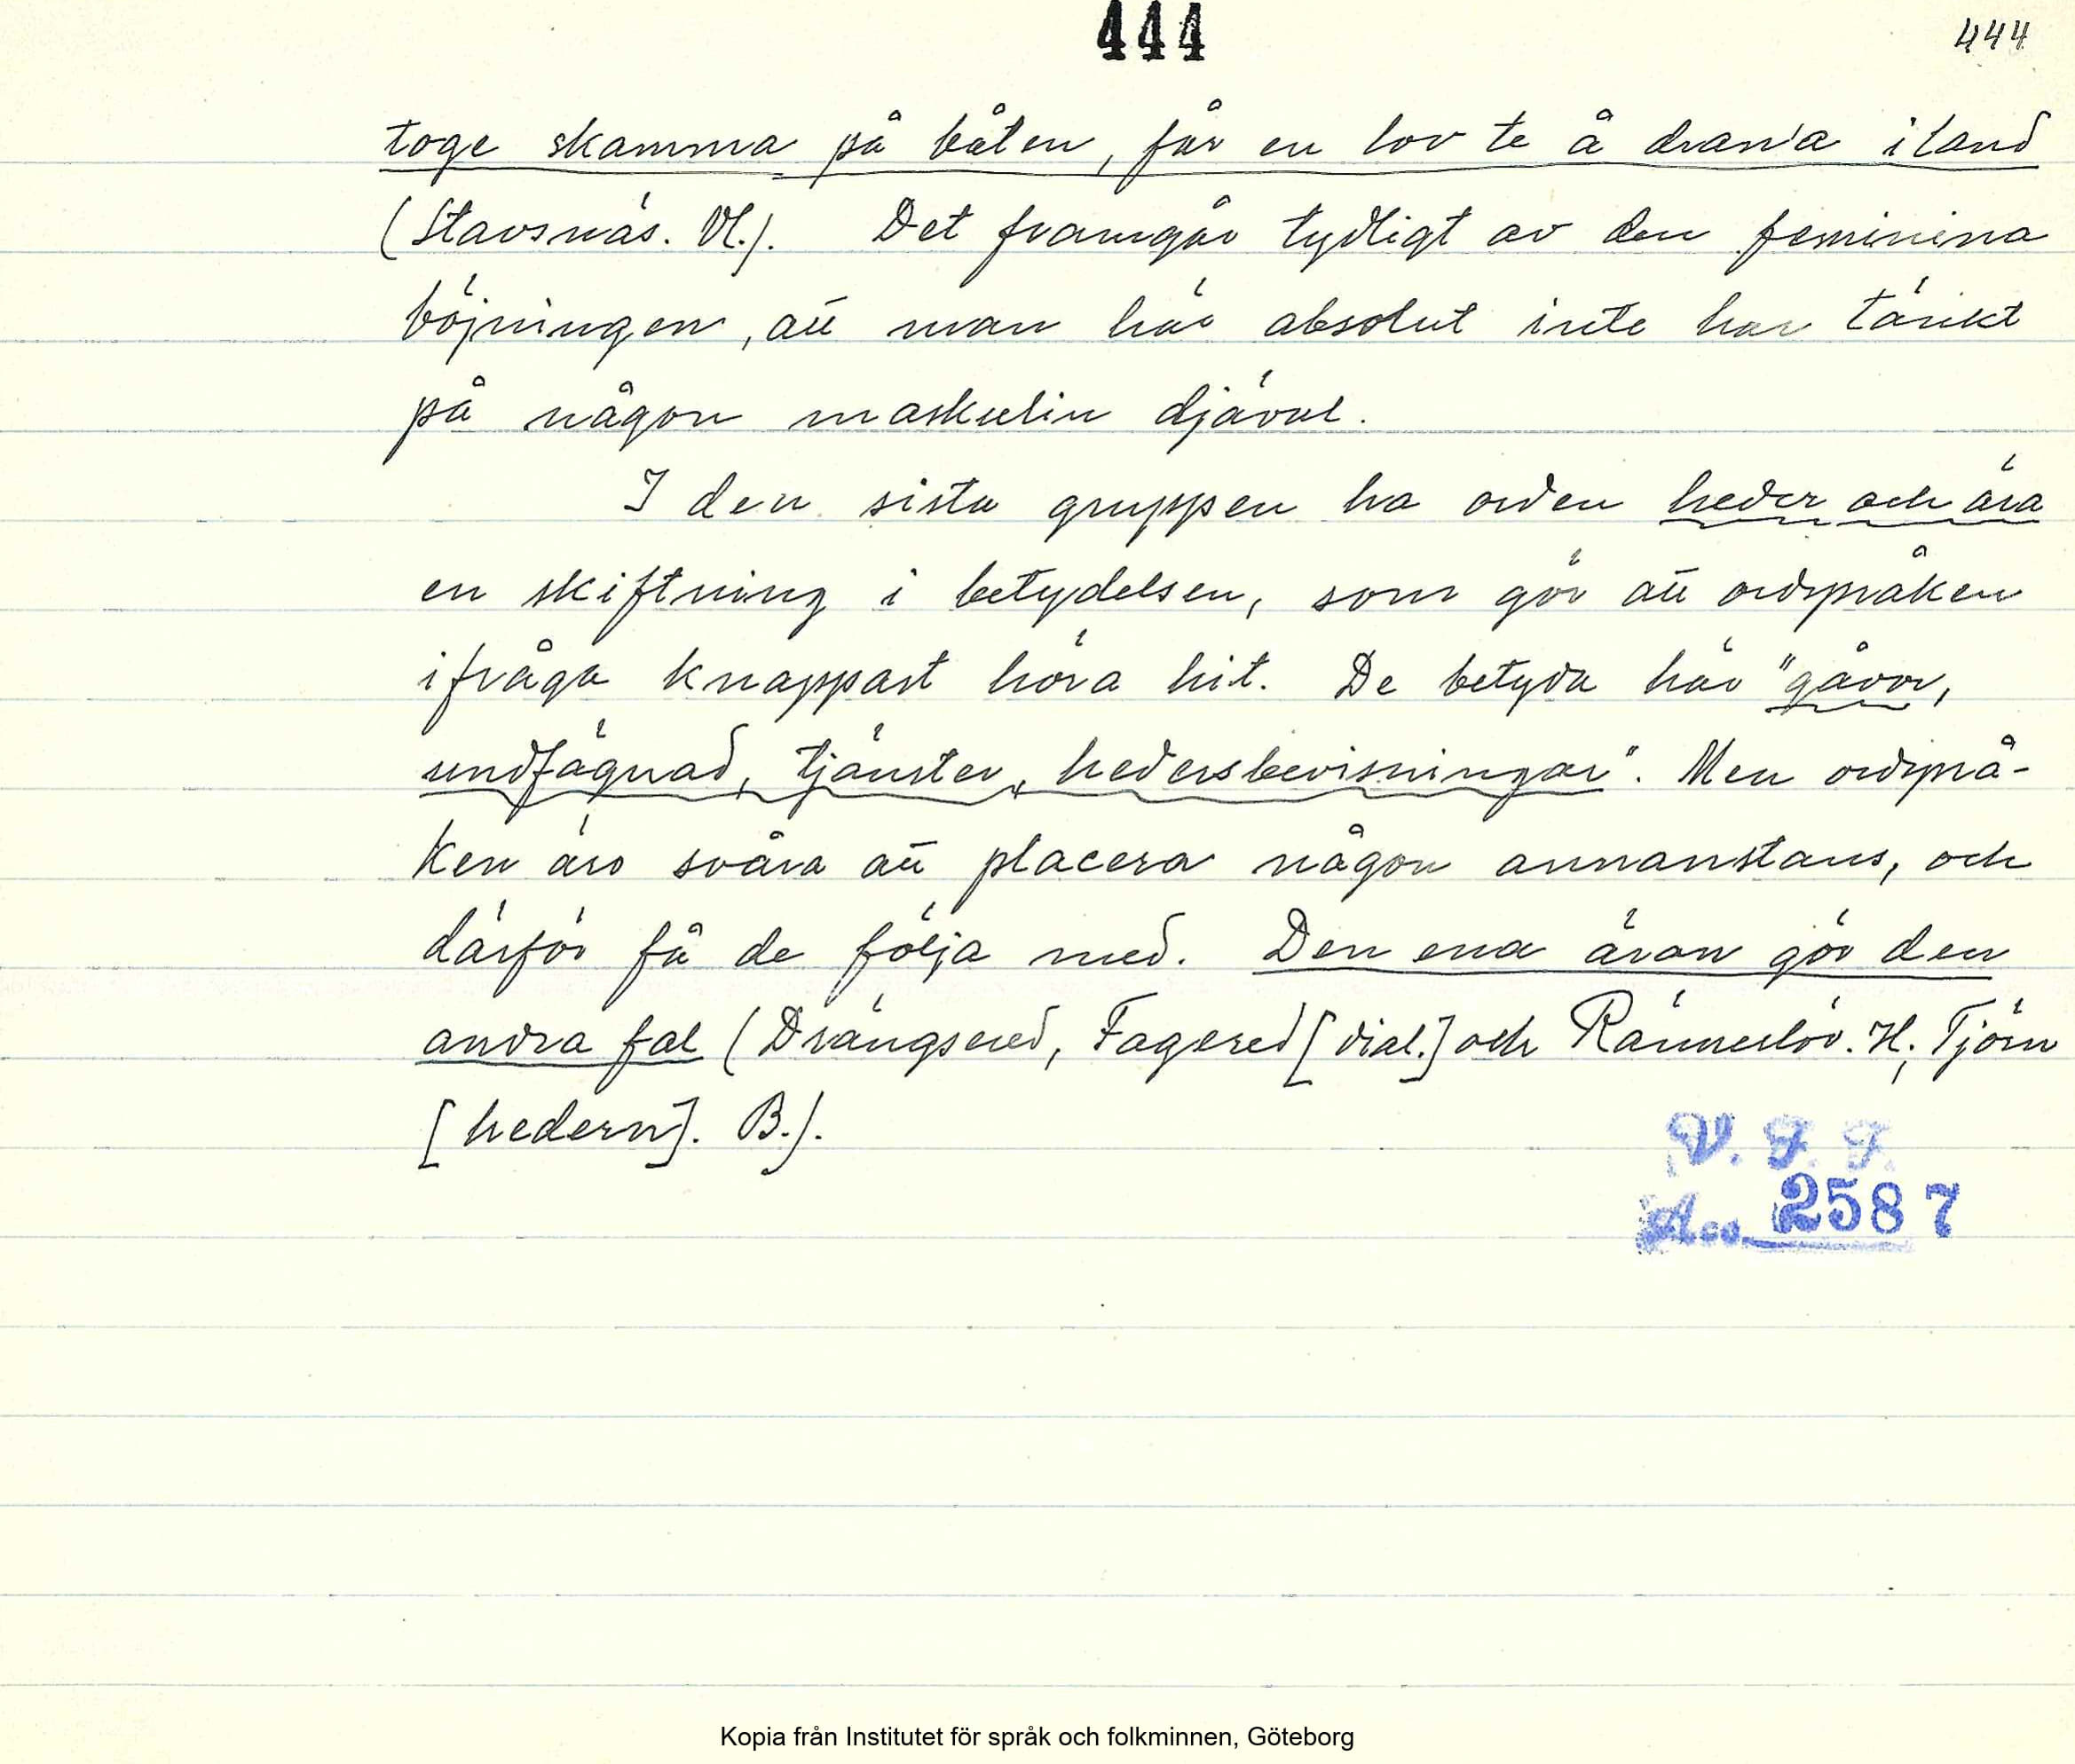 444
444
toge skamma på båten, får en lov te å dra na i land
(Stavsnäs. Vl.). Det framgår tydligt av den feminina
böjningen, att man här absolut inte har tänkt
på någon maskulin djävul.
I den sista gruppen ha orden heder och ära
en skiftning i betydelsen, som gör att ordspråken
ifråga knappast höra hit. De betyda här "gåvor,
undfägnad, tjänster, hedersbevisningar". Men ordsprå-
ken äro svåra att placera någon annanstans, och
därför få de följa med. Den ena äran gör den
andra fal (Drängsered, Fagered [dial.] och Ränneslöv. H; Tjörn
[hedern]. B.).
V. F. F.
Acc. 2587
Kopia från Institutet för språk och folkminnen, Göteborg